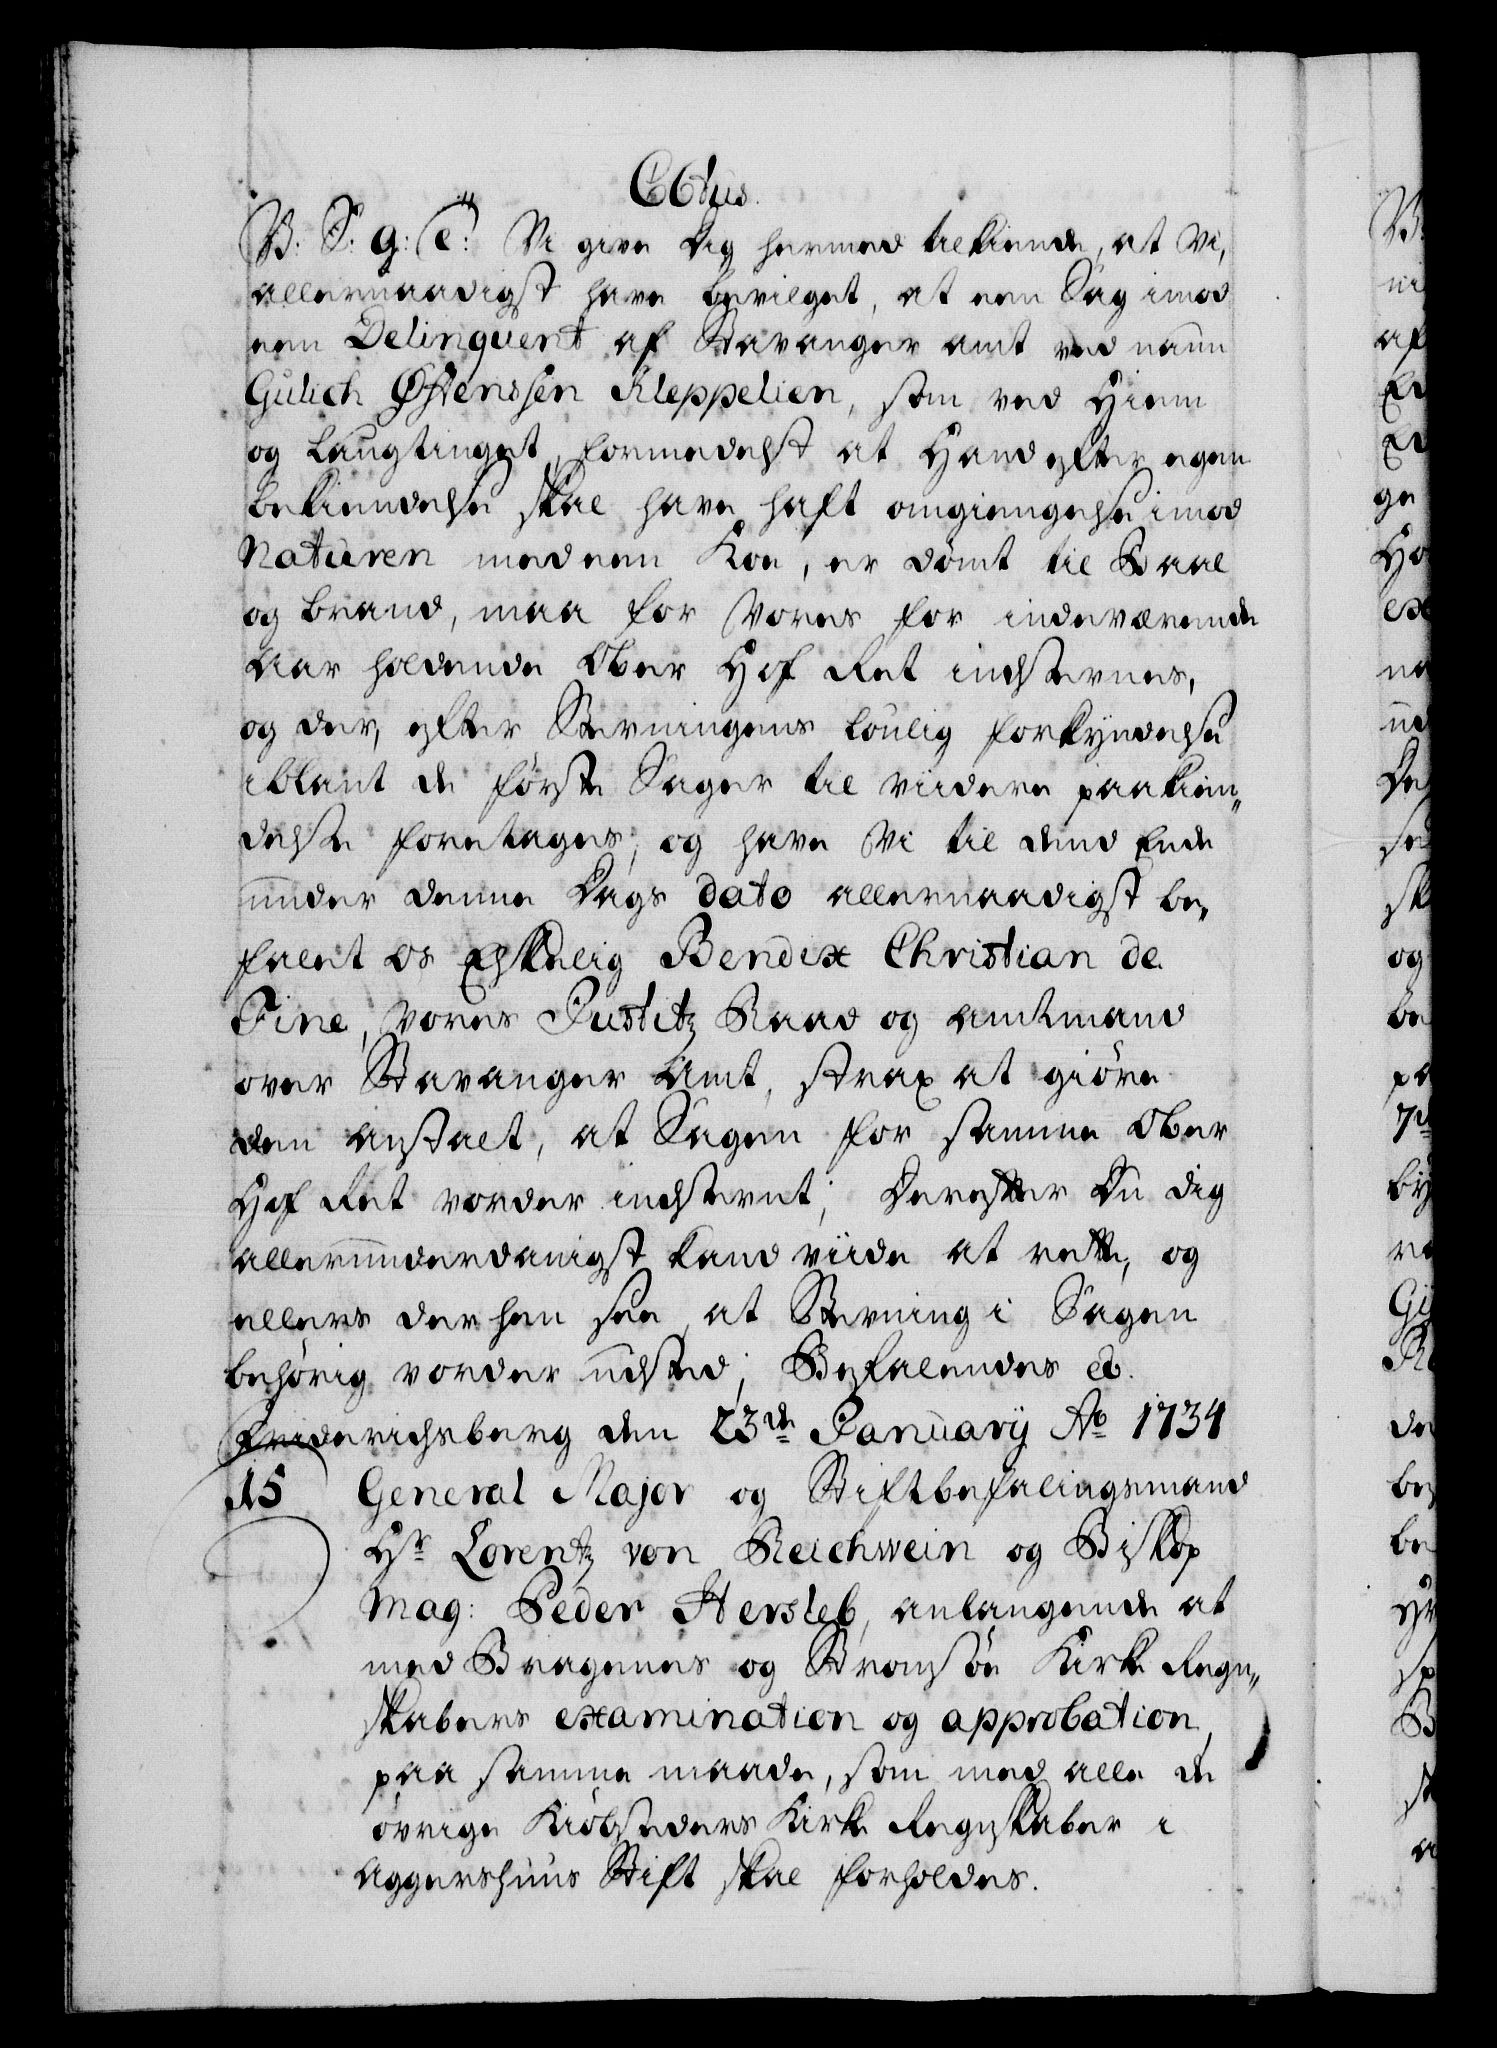 C6tus.
V: S: g: e: Vi give Dig hermed tilkiende, at Vi,
allernaadigst have bevilget, at een Sag imod
een Delinquent af Stavanger amt ved naun
Gulich Østenssen Kleppelien, som ved Hiem
og Laugtinget, formedelst at Hand efter egen
bekiendelse skal have haft omgiengelse imod
Naturen med een Koe, er dömt til Baal
og brand, maa for Vores for indeværende
Aar holdende Ober Hof Ret indstevnes,
og der, efter Stevningens Loulig forkyndelse
iblant de förste Sager til viidere paakien„
delse foretages; og have Vi til dend Ende
under denne Dags dato allernaadigst be„
falet Os Elskelig Bendix Christian de
Fine, Vores Justitz Raad og Amtmand
over Stavanger Amt, strax at giöre
den anstalt, at Sagen for samme Ober
Hof Ret vorder indstevnt; Derefter Du dig
allerunderdanigst kand viide at rette, og
ellers der hen see, at Stevning i Sagen
behörig vorder udsted; Befalendes etc.
Friderichsberg den 23de January Ao 1734
15 General Major og Stiftbefalingsmand
Hr Lorentz von Reichwein og Biskop
Mag: Peder Hersleb, anlangende at
med Bragenes og Stromsöe Kirke Regn„
skabers examination og approbation,
paa samme maade, som med alle de
övrige Kiöbsteders Kirke Regnskaber i
Aggershuus Stift skal forholdes.